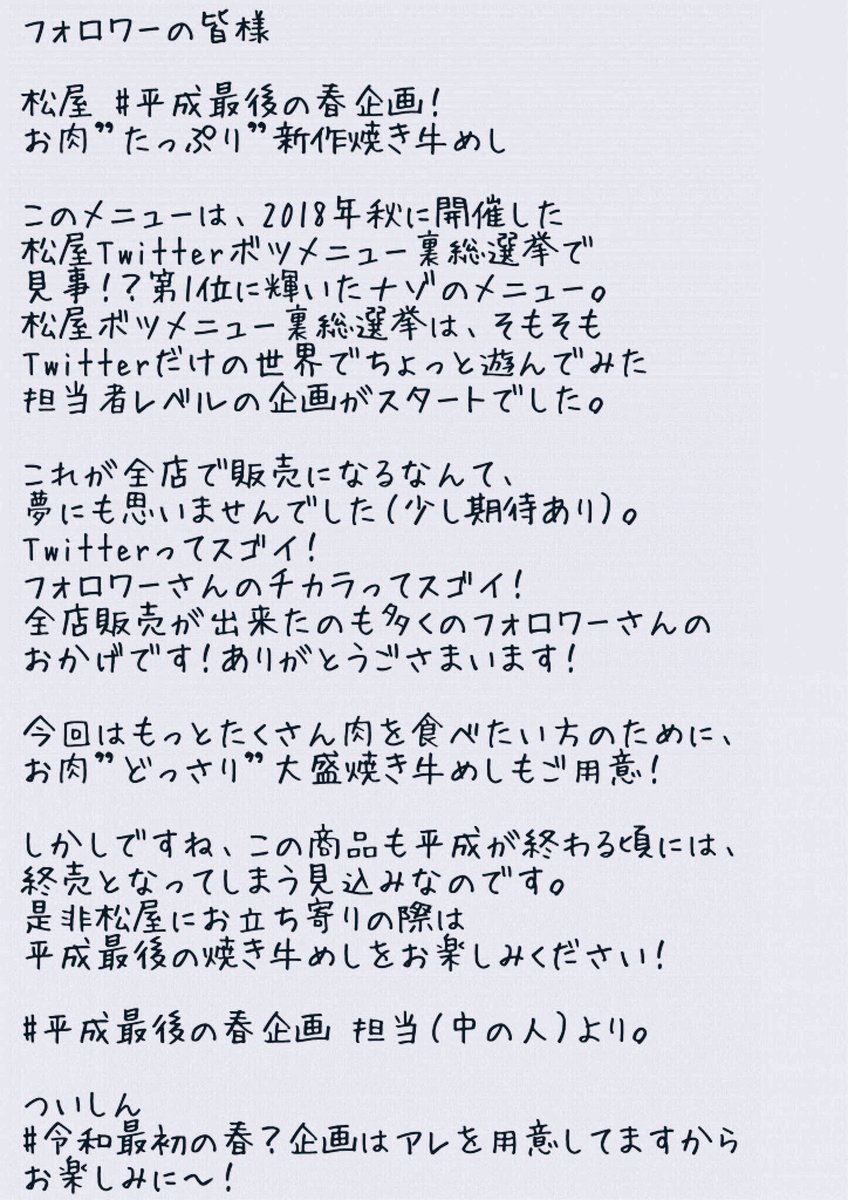 フォロワーの皆様
松屋 #平成最後の春企画!
お肉”たっぷり”新作焼き牛めし
このメニューは、2018年秋に開催した
松屋Twitterボツメニュー裏総選挙で
見事!?第1位に輝いたナゾのメニュー。
松屋ボツメニュー裏総選挙は、そもそも
Twitterだけの世界でちょっと遊んでみた
担当者レベルの企画がスタートでした。
これが全店で販売になるなんて、
夢にも思いませんでした(少し期待あり)。
Twitterってスゴイ!
フォロワーさんのチカラってスゴイ!
全店販売が出来たのも多くのフォロワーさんの
おかげです!ありがとうごさまいます!
今回はもっとたくさん肉を食べたい方のために、
お肉”どっさり”大盛焼き牛めしもご用意!
しかしですね、この商品も平成が終わる頃には、
終売となってしまう見込みなのです。
是非松屋にお立ち寄りの際は
平成最後の焼き牛めしをお楽しみください!
#平成最後の春企画 担当(中の人)より。
ついしん
#令和最初の春?企画はアレを用意してますから
お楽しみに〜!